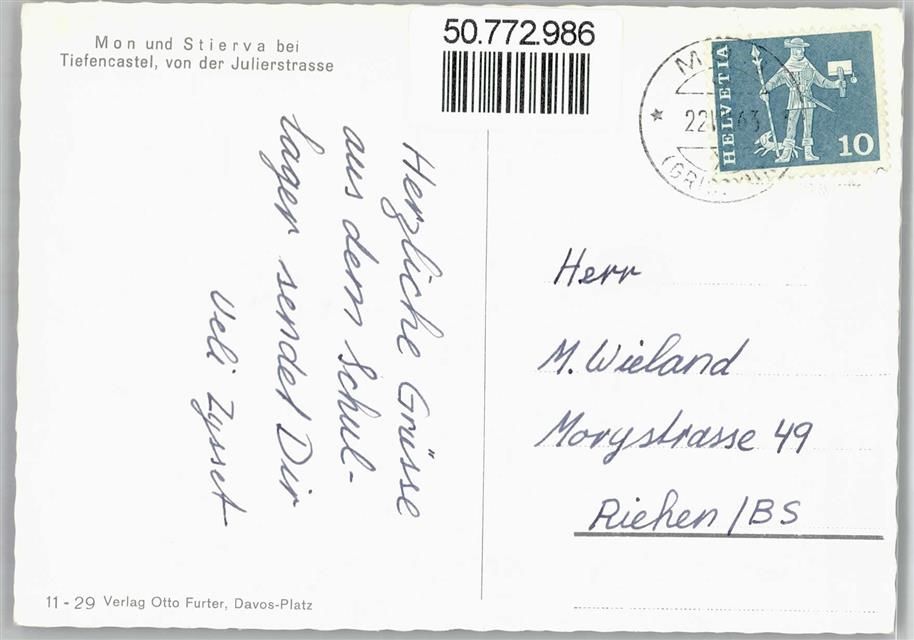 Mon und Stierva bei
Tiefencastel, von der Julierstrasse
50.772.986
HELVETIA
10
Herzliche Grüsse
aus dem Schul-
lager sendet Dir
Ueli Zysset
Herr
M. Wieland
Morystrasse 49
Riehen/BS
11 - 29 Verlag Otto Furter, Davos-Platz